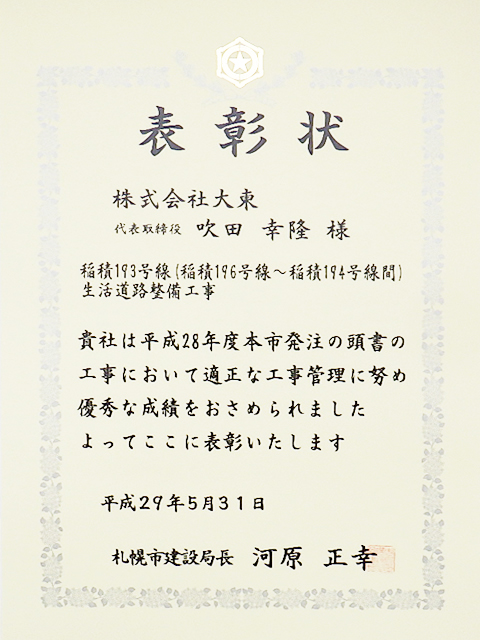 表彰状
株式会社大東
代表取締役 吹田 幸隆 様
稲積193号線(稲積196号線～稲積194号線間)
生活道路整備工事
貴社は平成28年度本市発注の頭書の
工事において適正な工事管理に努め
優秀な成績をおさめられました
よってここに表彰いたします
平成29年5月31日
札幌市建設局長 河原 正幸